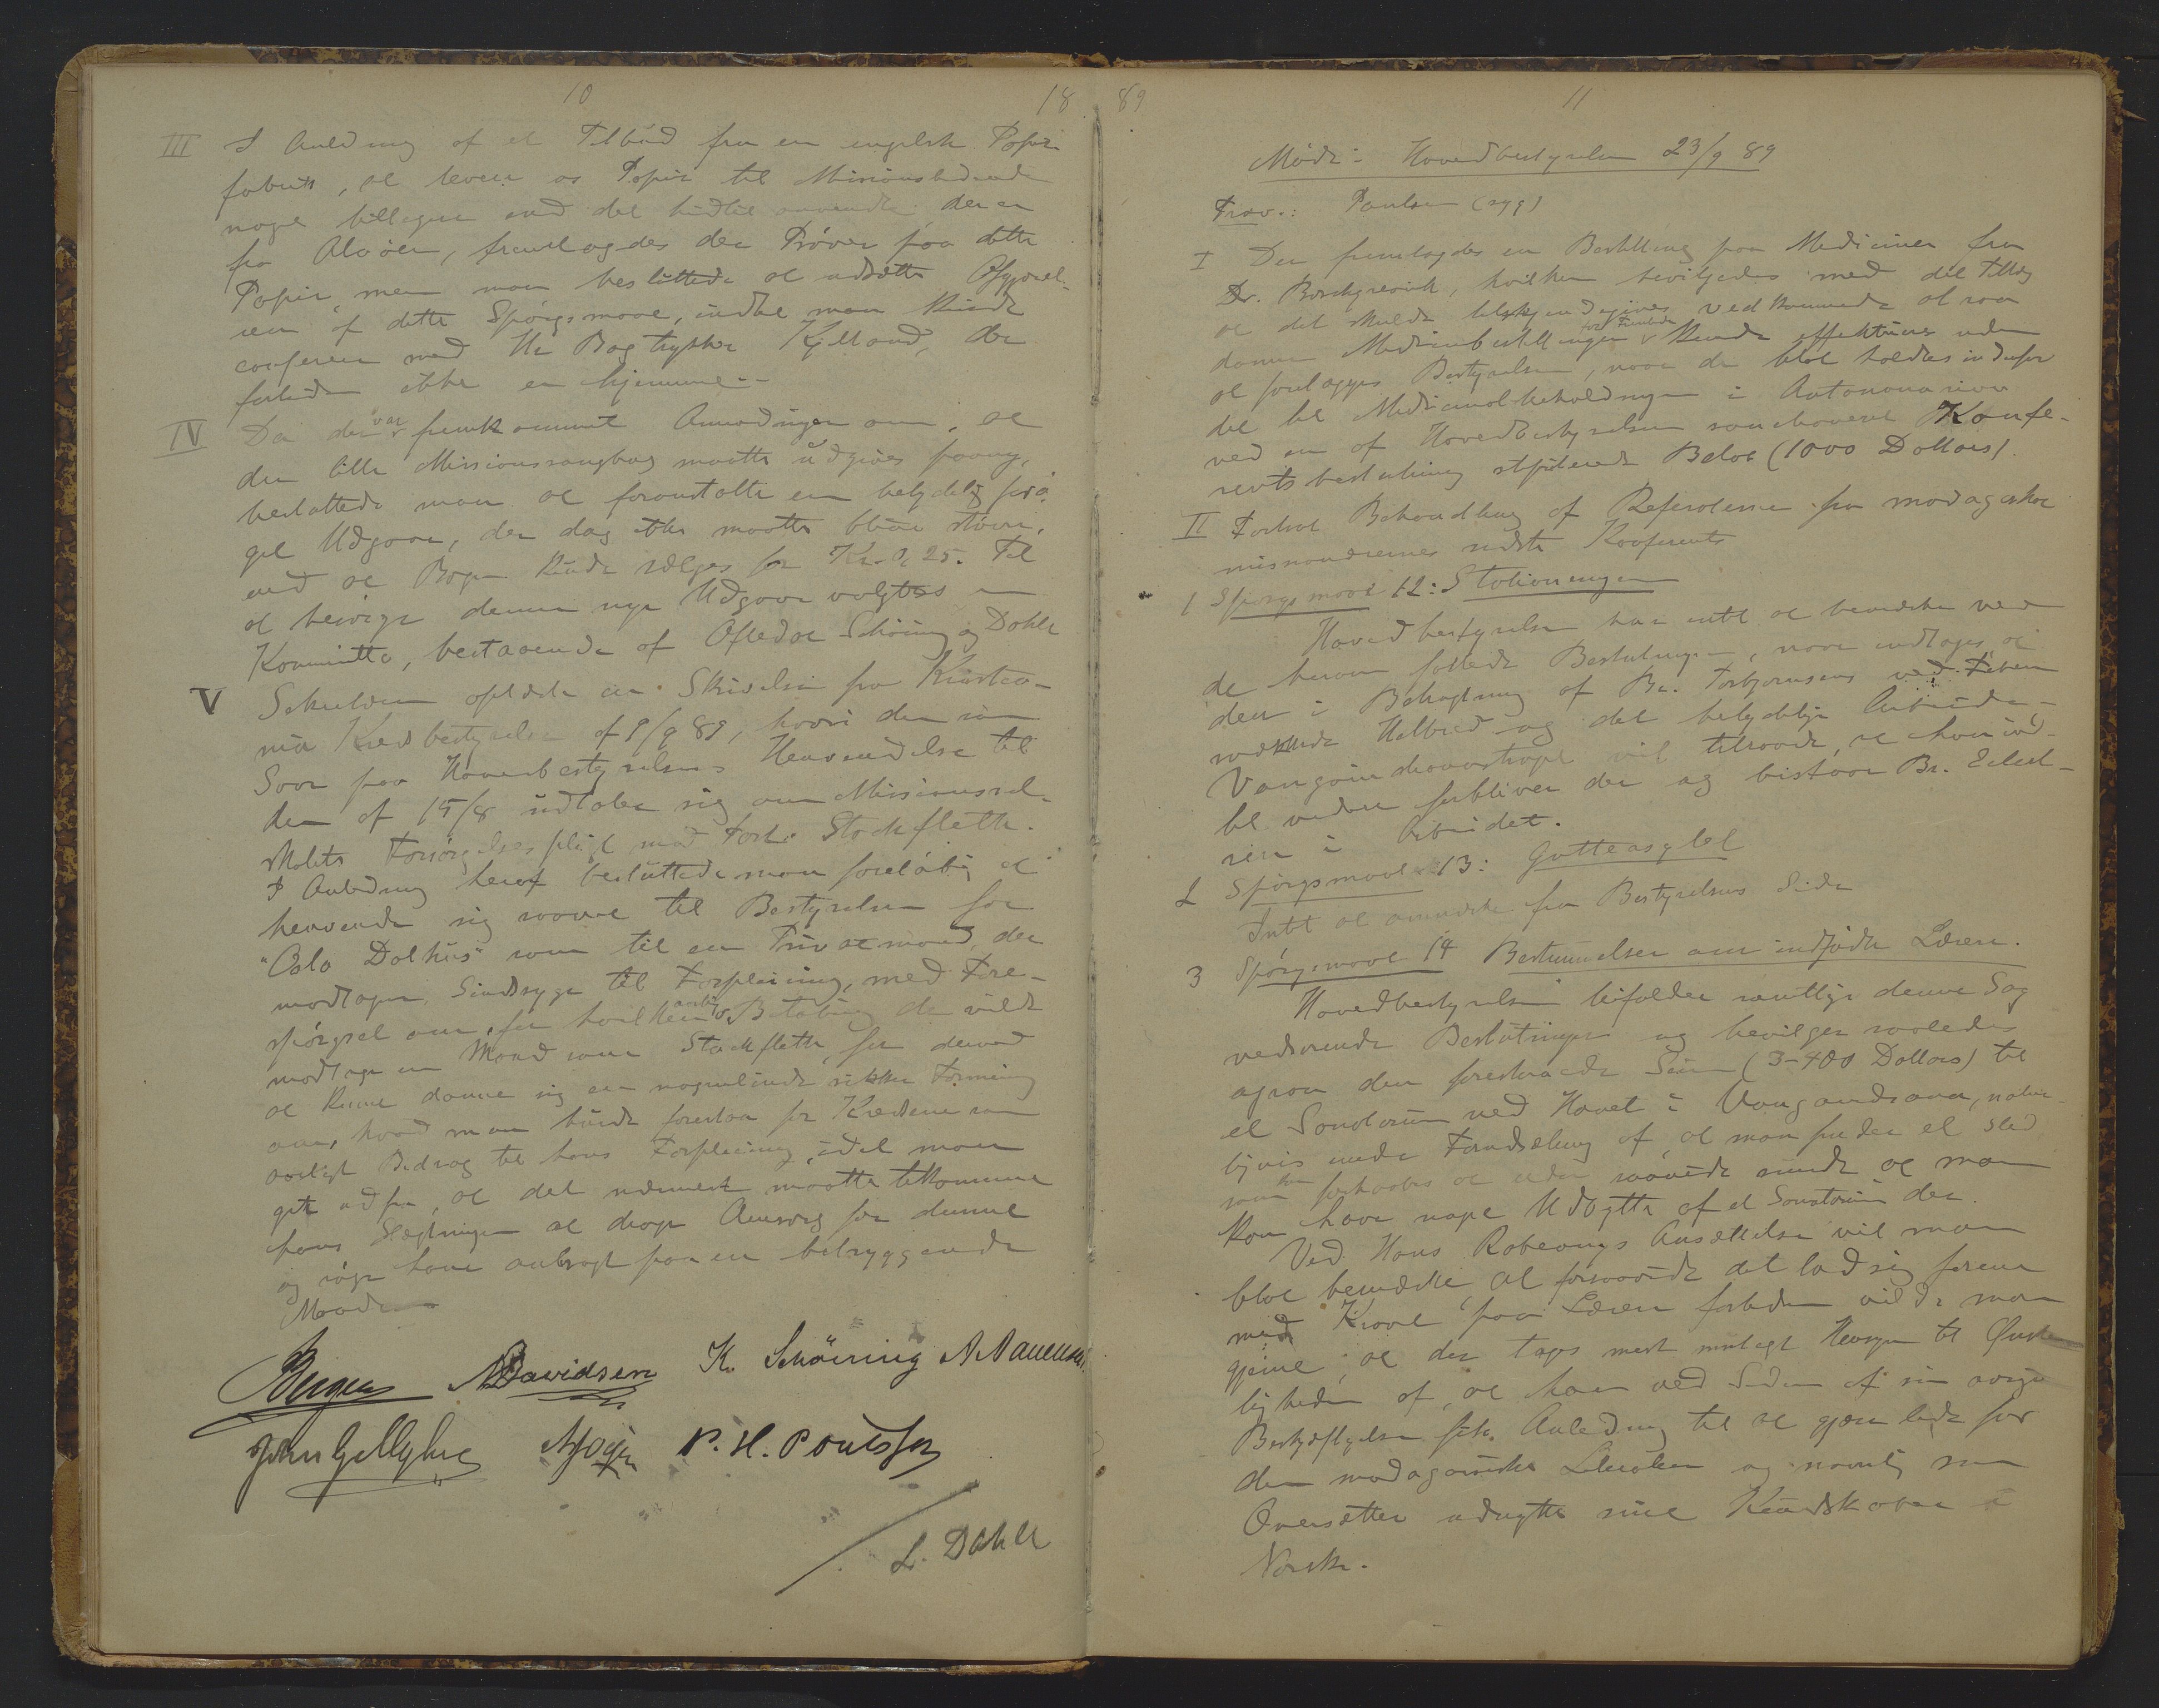 10
18
III I Anledning af et Tilbud fra en engelsk Papir
fabrik, at levere os Papir til Missionstidende
noget billigere end det hidtil anvendte, der er
fra Alvøen, fremlagdes der Prøver paa dette
Papir, men man besluttede at udsætte Afgjørel-
sen af dette Spørgsmaal, indtil man kunde
conferere med Hr Bogtrykker Kielland, der
fortiden ikke er hjemme.
IV Da der var fremkommet Anmodninger om, at
den lille Missionssangbog maatte udgives paany,
besluttede man at foranstalte en betydelig forø-
get Udgave, der dog ikke maatte blive større,
end at Bogen kunde sælges for Kr. 0,25. Til
at besørge denne nye Udgave valgtes en
Kommitte, bestaaende af Øfledal Schøning og Dahle
V Sekretæren oplæste en Skrivelse fra Kristia-
nia Kredsbestyrelse af 9/9 89, hvori den som
Svar paa Hovedbestyrelsens Henvendelse til
den af 15/8 udtaler sig om Missionssel-
skabets Forsørgelsespligt mod Forh. Stockfleth.
I Anledning heraf besluttede man foreløbig at
henvende sig saavel til Bestyrelsen for
"Oslo Dolhus" som til en Privatmand, der
modtager Sindssyge til Forpleining, med Fore-
spørgsel om, for hvilken aarlig Betaling de vilde
modtage en Mand som Stockfleth, for derved
at kunne danne sig en nogenlunde sikker Formening
om, hvad man burde foreslaa for Kredsene som
aarligt Bidrag til hans Forpleining, idet man
gik ud fra, at det nærmest maatte tilkomme
hans Slægtninger at drage Omsorg for denne
og søge ham anbragt paa en betryggende
Maade
Bergen NDavidsen K. Schöning
P. H. Poulssen
L. Dahle
89
11
Møde i Hovedbestyrelsen 23/9 89
Frav.: Paulsen (syg)
I Der fremlagdes en Bestilling paa Mediciner fra
Dr. Borchgrevink, hvilken bevilgedes med det Tillæg
at det skulde tilkjendegives vedkommende at saa
danne Medicinbestillinger for Fremtiden kunde effektueres uden
at forelægges Bestyrelsen, naar de blot holdtes indenfor
det til Medicinalbeholdningen i Antananarivo
ved en af Hovedbestyrelsen sanctioneret Konfe-
rentsbeslutning stipulerede Beløb (1000 Dollars).
II Fortsat Behandling af Referaterne fra madagaskar
missionærernes sidste Konferents
1 Spørgsmaal 12: Stationeringen
Hovedbestyrelsen har intet at bemærke ved
de herom fattede Beslutninger, naar undtages, at
den i Betragtning af Br. Torbjørnsens ved Feber
svækkede Helbred og det betydelige Arbeide i
Vangaindranostrøget vil tilraade, at han ind-
til videre forbliver der og bistaar Br.
sen i Arbeidet.
2 Spørgsmaal 13: Gutteasylet
Intet at anmærke fra Bestyrelsens Side
3 Spørgsmaal 14 Bestemmelser om indfødte Lærere.
Hovedbestyrelsen bifalder samtlige denne Sag
vedrørende Beslutninger og bevilger saaledes
ogsaa den foreslaaede Sum (3-400 Dollars) til
et Sanatorium ved Havet i Vangaindrano, natur-
ligvis under Forudsætning af, at man finder et Sted
som kan forhaabes at være saavidt sundt at man
kan have noget Udbytte af et Sanatorium der.
Ved Hans Rabeonys Ansættelse vil man
blot bemærke, at forsaavidt det lod sig forene
med Kravet paa Lærere fortiden vilde man
gjerne, at der toges mest muligt Hensyn til Ønske-
ligheden af, at han ved Siden af sin øvrige
Beskjæftigelse fik Anledning til at gjøre Gavn for
den madagassiske Literatur og navnlig som
Oversætter udnytte sine Kundskaber i
Norsk.